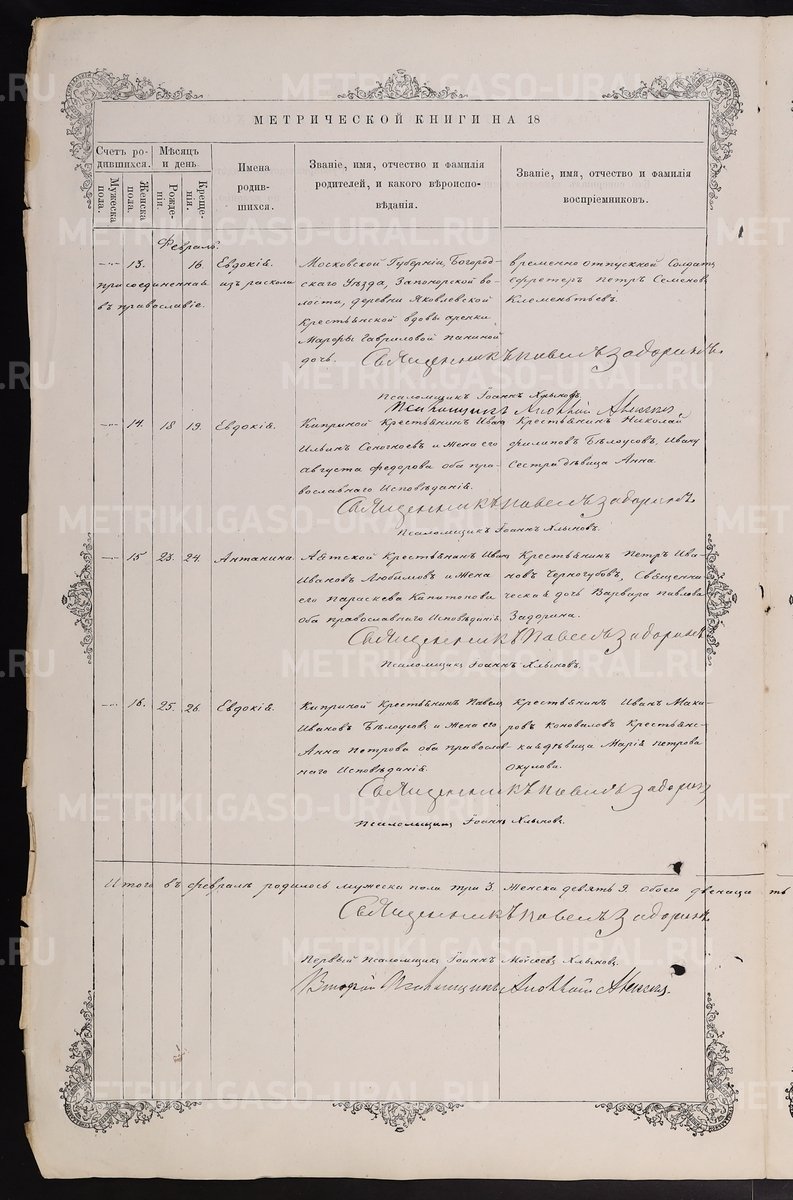 МЕТРИЧЕСКОЙ КНИГИ НА 18
Счетъ ро-
дившихся.
Мѣсяцъ
и день.
Имена
родив-
шихся.
Званіе, имя, отчество и фамилія
родителей, и какого вѣроиспо-
вѣданія.
Званіе, имя, отчество и фамилія
воспріемниковъ.
Мужеска
пола.
Женска
пола.
Рожде-
нія.
Креще-
нія.
Февраль.
13. 16. Евдокія. Московской Губерніи, Богород- временно отпускной Солдатъ
присоединенная изъ раскола скаго Уѣзда, Запонорской во- ефрейтеръ Петръ Семеновъ
въ православіе. лости, деревни Яковлевской Клементьевъ.
крестьянской вдовы
Гавриловой Паниной
дочь. Священникъ Павелъ Задоринъ.
Псаломщикъ Іоаннъ Хлыновъ.
Псаломщикъ
14. 18 19. Евдокія. Крестьянинъ Иванъ Крестьянинъ Николай
Ильинъ и жена его Филиповъ Бѣлоусовъ, Ивану
Августа Федорова оба пра- Сестра дѣвица Анна
вославнаго Исповѣданія.
Священникъ Павелъ Задоринъ.
Псаломщикъ Іоаннъ Хлыновъ.
15 23. 24. Антанина. Крестьянинъ Иванъ Крестьянинъ Петръ Ива-
Ивановъ Любимовъ и Жена новъ Черногубовъ, Священни-
его Параскева Капитонова ческая дочь Варвара Павлова
оба православнаго Исповѣданія. Задорина.
Священникъ Павелъ Задоринъ
Псаломщикъ Іоаннъ Хлыновъ.
16. 25. 26. Евдокія. Крестьянинъ Павелъ Крестьянинъ Иванъ Мака-
Ивановъ Бѣлоусовъ и Жена его ровъ Коноваловъ Крестьянс-
Анна Петрова оба православ- кая дѣвица Марія Петрова
наго Исповѣданія. Окулова.
Священникъ Павелъ Задоринъ
Псаломщикъ Іоаннъ Хлыновъ.
Итого въ февралѣ родилось мужеска пола три 3. Женска девять 9. Обоего двенадцать
Священникъ Павелъ Задоринъ.
Первый Псаломщикъ Іоаннъ Моисеевъ Хлыновъ.
Второй Псаломщикъ
METRIKI.GASO-URAL.RU